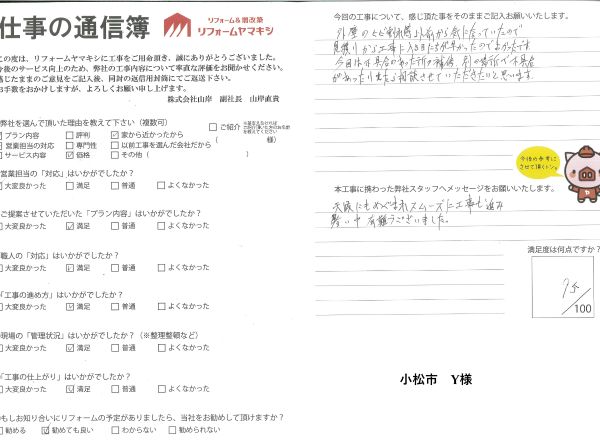 仕事の通信簿
リフォーム&増改築
リフォームヤマキシ
この度は、リフォームヤマキシに工事をご用命頂き、誠にありがとうございました。
今後のサービス向上のため、弊社の工事内容について率直な評価をお聞かせください。
感じたままのご意見をご記入後、同封の返信用封筒にてご返送下さい。
お手数をおかけしますが、よろしくお願い申し上げます。
株式会社山岸 副社長 山岸直貴
弊社を選んで頂いた理由を教えて下さい（複数可）
プラン内容 □評判 ☑家から近かったから □ご紹介
営業担当の対応 □専門性 □以前工事を選んだ会社だから （ 様）
□サービス内容 ☑価格 □その他（
営業担当の「対応」はいかがでしたか？
大変良かった ☑満足 □普通 □よくなかった
ご提案させていただいた「プラン内容」はいかがでしたか？
大変良かった ☑満足 □普通 □よくなかった
職人の「対応」はいかがでしたか？
大変良かった ☑満足 □普通 □よくなかった
「工事の進め方」はいかがでしたか？
大変良かった ☑満足 □普通 □よくなかった
現場の「管理状況」はいかがでしたか？（※整理整頓など）
大変良かった ☑満足 □普通 □よくなかった
「工事の仕上がり」はいかがでしたか？
大変良かった ☑満足 □普通 □よくなかった
もしお知り合いにリフォームの予定がありましたら、当社をお勧めして頂けますか？
勧める ☑勧めても良い □わからない □勧められない
今回の工事について、感じた事をそのままご記入お願いいたします。
外壁のヒビ割れ等が以前から気になっていたので
見積りから工事に入るまでが早かったのでよかったです
今回は不具合のあった所の補修、別の場所で不具合
があったりましたら相談させていただきたいと思います。
今後の参考に
させて頂くトン。
本工事に携わった弊社スタッフへメッセージをお願いいたします。
天候にもめぐまれスムーズに工事も進み
暑い中有難うございました。
満足度は何点ですか？
95
/100
小松市 Y様